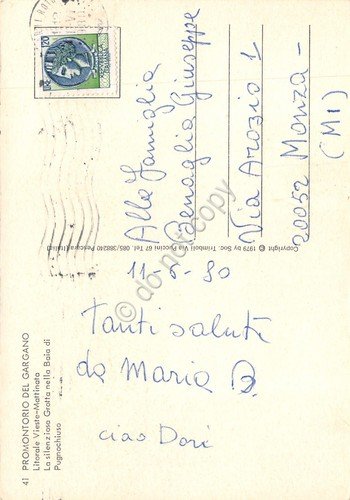 41 PROMONTORIO DEL GARGANO
Litorale Vieste-Mattinata
La silenziosa Grotta nella Baia di
Pugnochiuso
11-6-80
Tanti saluti
da Maria B.
ciao Dori
Copyright © 1979 by Soc. Trimboli Via Puccini 67 Tel. 085/388240 Pescara (Italia)
Alla Famiglia
Benaglia Giuseppe
Via Arozio 1
20052 Monza-
(MI)
do not copy